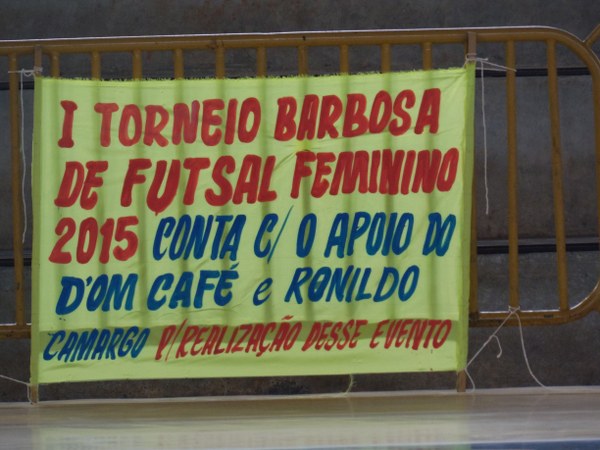 I TORNEIO BARBOSA
DE FUTSAL FEMININO
2015 CONTA C/ O APOIO DO
D'OM CAFÉ e RONILDO
CAMARGO P/REALIZAÇÃO DESSE EVENTO